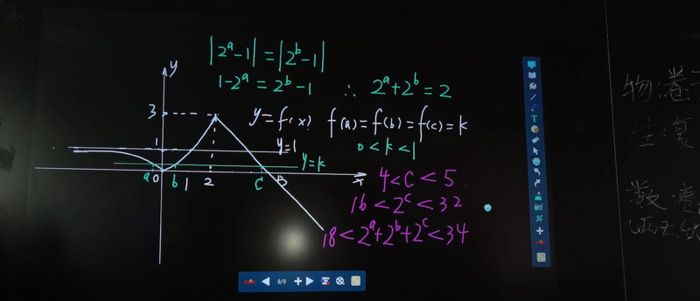 |2ᵃ-1|=|2ᵇ-1|
1-2ᵃ=2ᵇ-1 ∴ 2ᵃ+2ᵇ=2
y
3
y=f(x) f(a)=f(b)=f(c)=k
0<k<1
1
y=1
y=k
a 0 b 1 2 c B x
4<c<5
16<2ᶜ<32
18<2ᵃ+2ᵇ+2ᶜ<34
8/9
T
物:卷子
生:复
数:卷